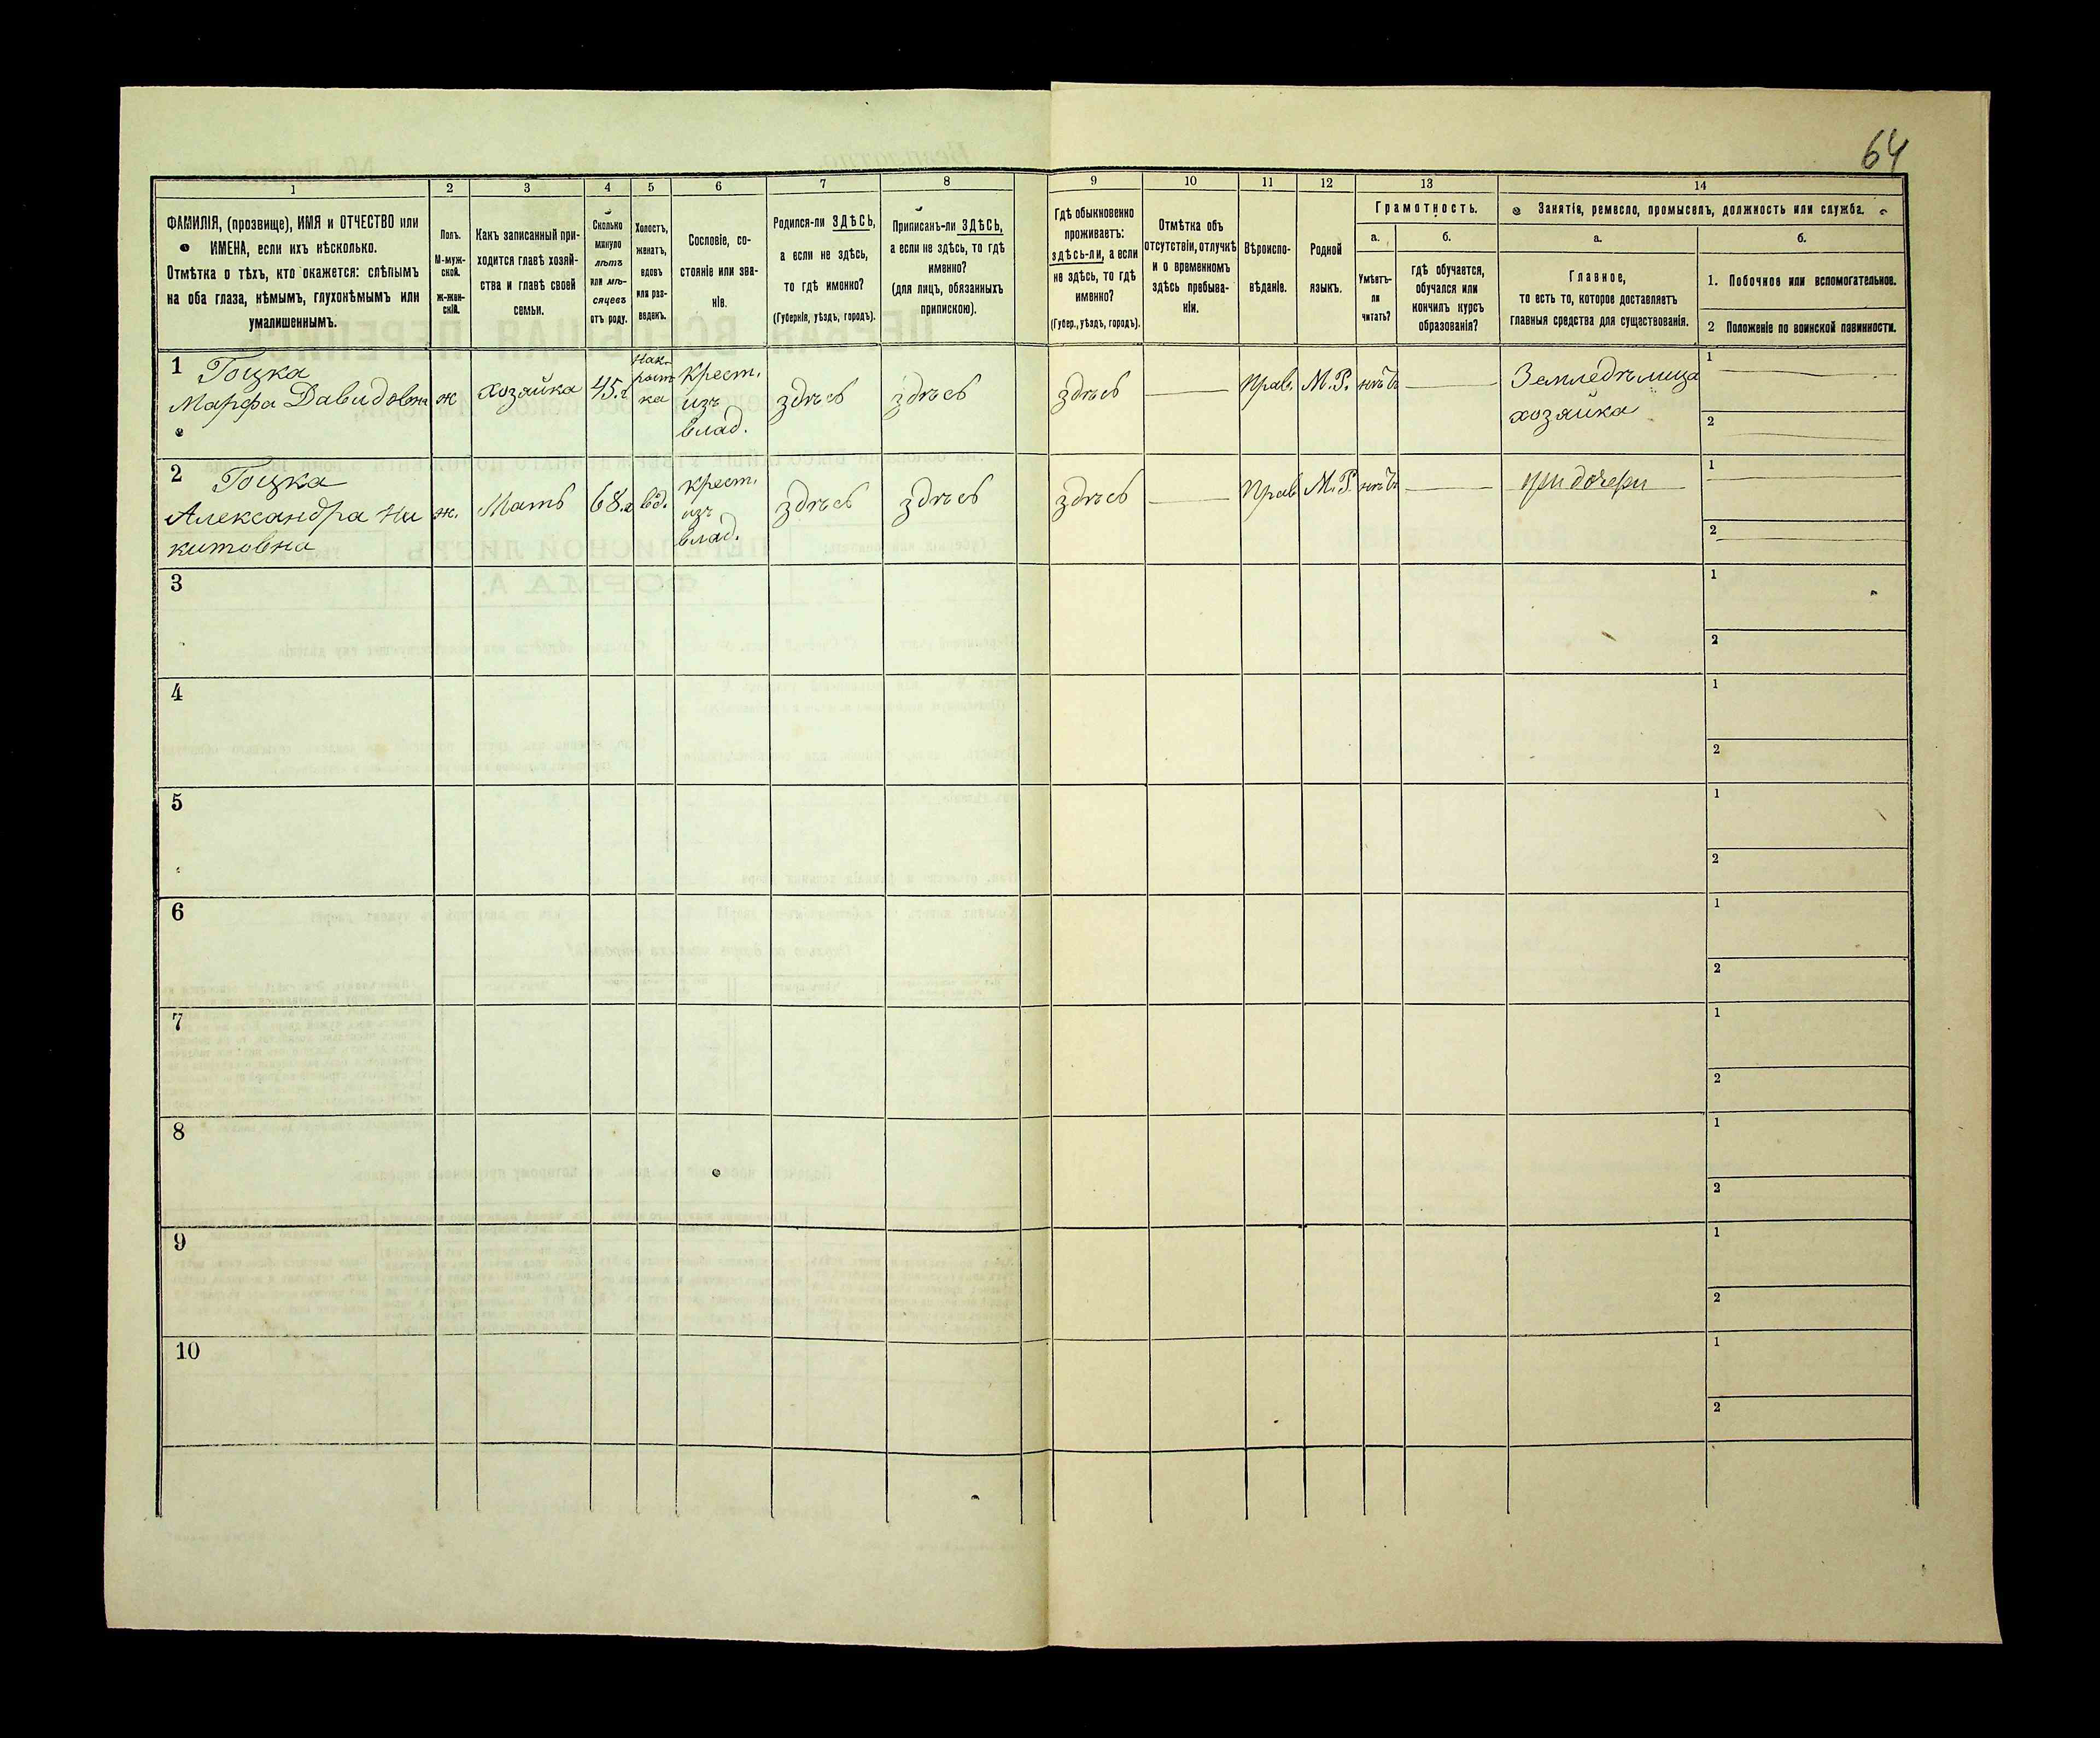 64
1
2
3
4
5
6
7
8
9
10
11
12
13
14
ФАМИЛІЯ, (прозвище), ИМЯ и ОТЧЕСТВО или
ИМЕНА, если ихъ нѣсколько.
Отмѣтка о тѣхъ, кто окажется: слѣпымъ
на оба глаза, нѣмымъ, глухонѣмымъ или
умалишеннымъ.
Полъ.
М-муж-
ской.
ж-жен-
скій.
Какъ записанный при-
ходится главѣ хозяй-
ства и главѣ своей
семьи.
Сколько
минуло
лѣтъ
или мѣ-
сяцевъ
отъ роду.
Холостъ,
женатъ,
вдовъ
или раз-
веденъ.
Сословіе, со-
стояніе или зва-
ніе.
Родился-ли ЗДѢСЬ,
а если не здѣсь,
то гдѣ именно?
(Губернія, уѣздъ, городъ).
Приписанъ-ли ЗДѢСЬ,
а если не здѣсь, то гдѣ
именно?
(для лицъ, обязанныхъ
припискою).
Гдѣ обыкновенно
проживаетъ:
здѣсь-ли, а если
не здѣсь, то гдѣ
именно?
(Губер., уѣздъ, городъ).
Отмѣтка объ
отсутствіи, отлучкѣ
и о временномъ
здѣсь пребыва-
ніи.
Вѣроиспо-
вѣданіе.
Родной
языкъ.
Грамотность.
а.
б.
Умѣетъ-
ли
читать?
гдѣ обучается,
обучался или
кончилъ курсъ
образованія?
Занятіе, ремесло, промыселъ, должность или служба.
а.
б.
Главное,
то есть то, которое доставляетъ
главныя средства для существованія.
1. Побочное или вспомогательное.
2 Положеніе по воинской повинности.
1 Гоцка
Марфа Давидовна
ж
хозяйка
45.г
крест.
изъ
влад.
здѣсь
здѣсь
здѣсь
Прав.
М.Р.
нѣтъ
Земледѣлица
хозяйка
1
2
2 Гоцка
Александра Ни
китовна
ж.
Мать
68.г
вд.
крест.
изъ
влад.
здѣсь
здѣсь
здѣсь
Прав
М.Р.
нѣтъ
при дочери
1
2
3
1
2
4
1
2
5
1
2
6
1
2
7
1
2
8
1
2
9
1
2
10
1
2